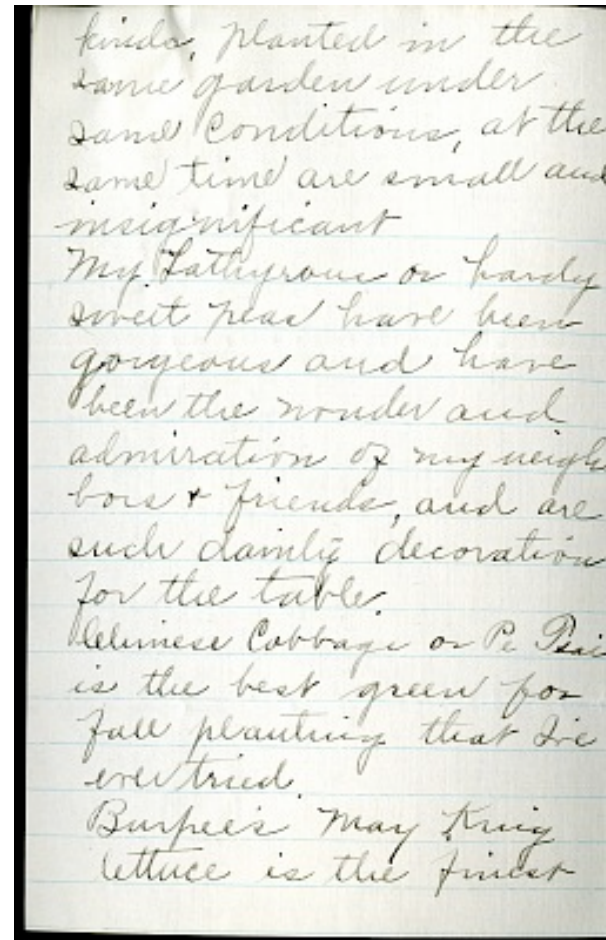 kinds, planted in the
same garden under
same conditions, at the
same time are small and
insignificant
My Lathyrous or hardy
sweet peas have been
gorgeous and have
been the wonder and
admiration of my neigh
bors + friends, and are
such dainty decoration
for the table.
Chinese Cabbage or Pe Psai
is the best green for
fall planting that I've
ever tried.
Burpee's May King
lettuce is the finest